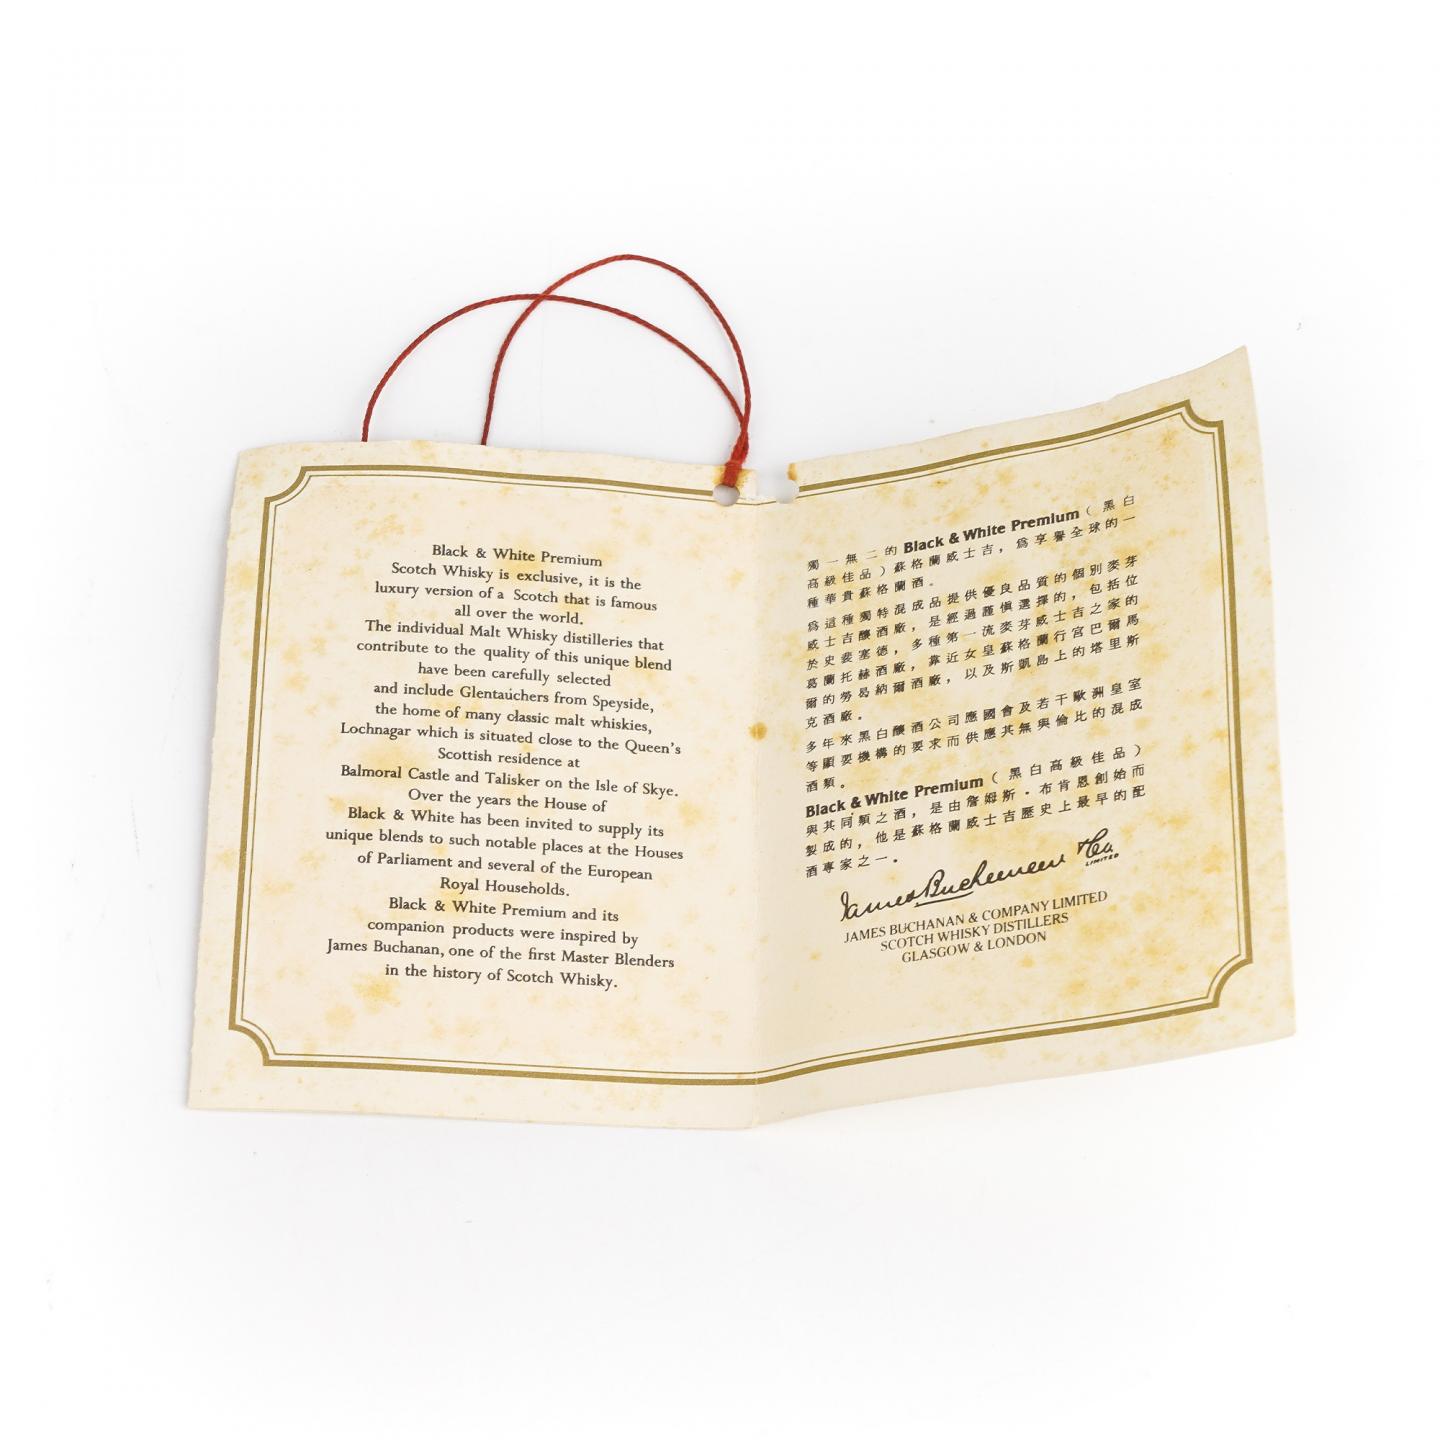 Black & White Premium
Scotch Whisky is exclusive, it is the
luxury version of a Scotch that is famous
all over the world.
The individual Malt Whisky distilleries that
contribute to the quality of this unique blend
have been carefully selected
and include Glentauchers from Speyside,
the home of many classic malt whiskies,
Lochnagar which is situated close to the Queen's
Scottish residence at
Balmoral Castle and Talisker on the Isle of Skye.
Over the years the House of
Black & White has been invited to supply its
unique blends to such notable places at the Houses
of Parliament and several of the European
Royal Households.
Black & White Premium and its
companion products were inspired by
James Buchanan, one of the first Master Blenders
in the history of Scotch Whisky.
獨一無二的 Black & White Premium ( 黑白
高級佳品 ) 蘇格蘭威士吉，爲享譽全球的一
種華貴蘇格蘭酒。
爲這種獨特混成品提供優良品質的個別麥芽
威士吉釀酒廠，是經過謹慎選擇的，包括位
於史裴塞德，多種第一流麥芽威士吉之家的
葛蘭托赫酒廠，靠近女皇蘇格蘭行宮巴爾馬
爾的勞曷納爾酒廠，以及斯凱島上的塔里斯
克酒廠。
多年來黑白釀酒公司應國會及若干歐洲皇室
等顯要機構的要求而供應其無與倫比的混成
酒類。
Black & White Premium ( 黑白高級佳品 )
與其同類之酒，是由詹姆斯·布肯恩創始而
製成的，他是蘇格蘭威士吉歷史上最早的配
酒專家之一。
James Buchanan & Co.
LIMITED
JAMES BUCHANAN & COMPANY LIMITED
SCOTCH WHISKY DISTILLERS
GLASGOW & LONDON